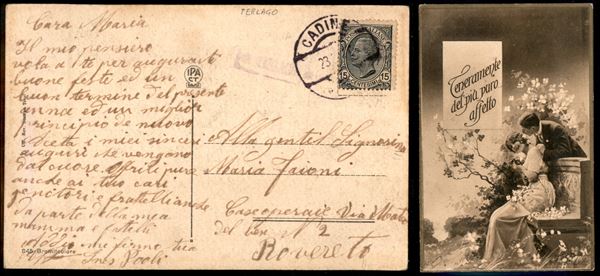 TERLAGO
Cara Maria
Il mio pensiero
vola a te per augurarti
buone feste ed un
buon termine del presente
anno ed un miglior
principio de nuovo
i miei sinceri
auguri che vengano
dal cuore
anche ai tuoi cari
genitori e fratelli anche
da parte della mia
mamma e fratelli
mi firmo tua
CADINE
23
15 15
IPA
CT
Alla gentil Signorina
Maria Faioni
Case operaie Via
del N 2
Rovereto
Teneramente
del più puro
affetto